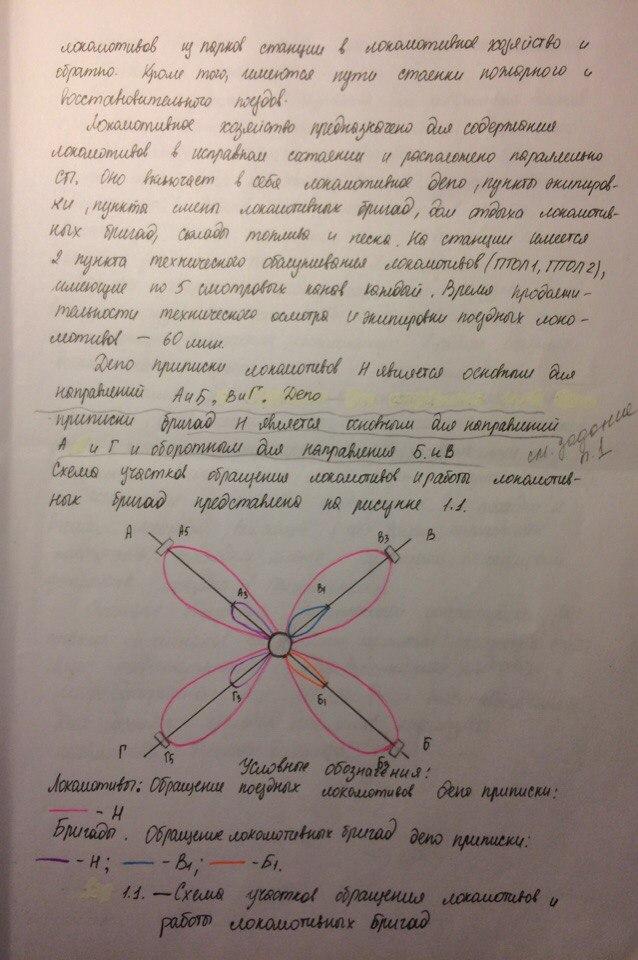 локомотивов из парков станции в локомотивное хозяйство и
обратно. Кроме того, имеются пути стоянки пожарного и
восстановительного поездов.
Локомотивное хозяйство предназначено для содержания
локомотивов в исправном состоянии и расположено параллельно
СП. Оно включает в себя локомотивное депо, пункты экипиров-
ки, пункты смены локомотивных бригад, дом отдыха локомотив-
ных бригад, склады топлива и песка. На станции имеется
2 пункта технического обслуживания локомотивов (ПТОЛ1, ПТОЛ2),
имеющие по 5 смотровых канав каждый. Время продолжи-
тельности технического осмотра и экипировки поездных локо-
мотивов — 60 мин.
Депо приписки локомотивов Н является основным для
направлений А и Б, В и Г. Депо
приписки бригад Н является основным для направлений
А и Г и оборотным для направления Б и В
см. задание
п. 1
Схема участков обращения локомотивов и работы локомотив-
ных бригад представлена на рисунке 1.1.
А А5 В3 В
А3 В1
Г3 Б1
Г Г5 Б3 Б
Условные обозначения:
Локомотивы: Обращение поездных локомотивов депо приписки:
— Н
Бригады. Обращение локомотивных бригад депо приписки:
— Н; — В1; — Б1.
1.1. — Схема участков обращения локомотивов и
работы локомотивных бригад